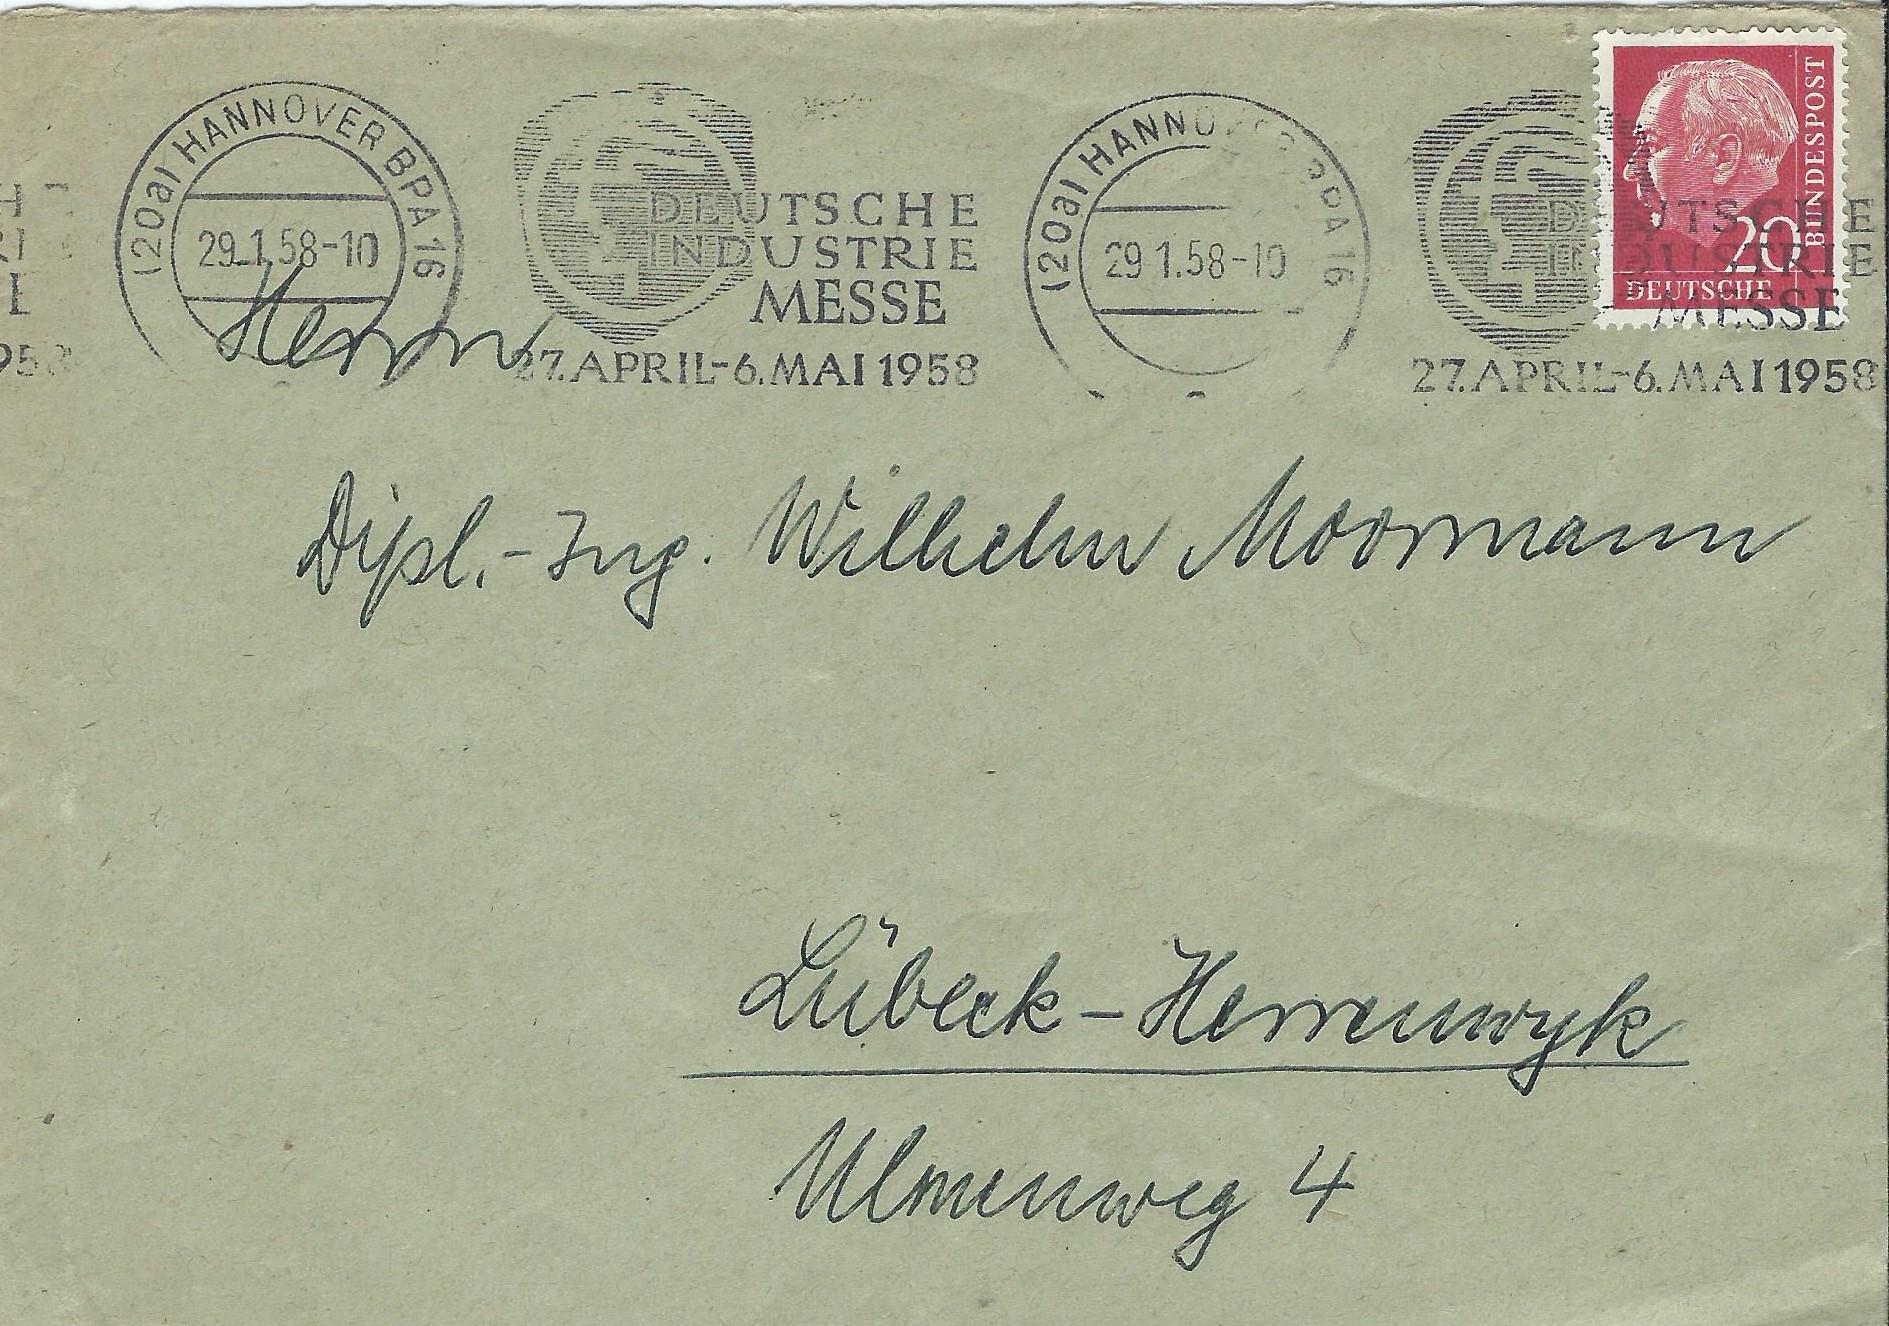 (20a) HANNOVER BPA 16
29.1.58-10
DEUTSCHE
INDUSTRIE
MESSE
27. APRIL-6. MAI 1958
(20a) HANNOVER BPA 16
29.1.58-10
DEUTSCHE
INDUSTRIE
MESSE
27. APRIL-6. MAI 1958
BUNDESPOST
20
DEUTSCHE
Herrn
Dipl.-Ing. Wilhelm Moormann
Lübeck-Herrenwyk
Ulmenweg 4